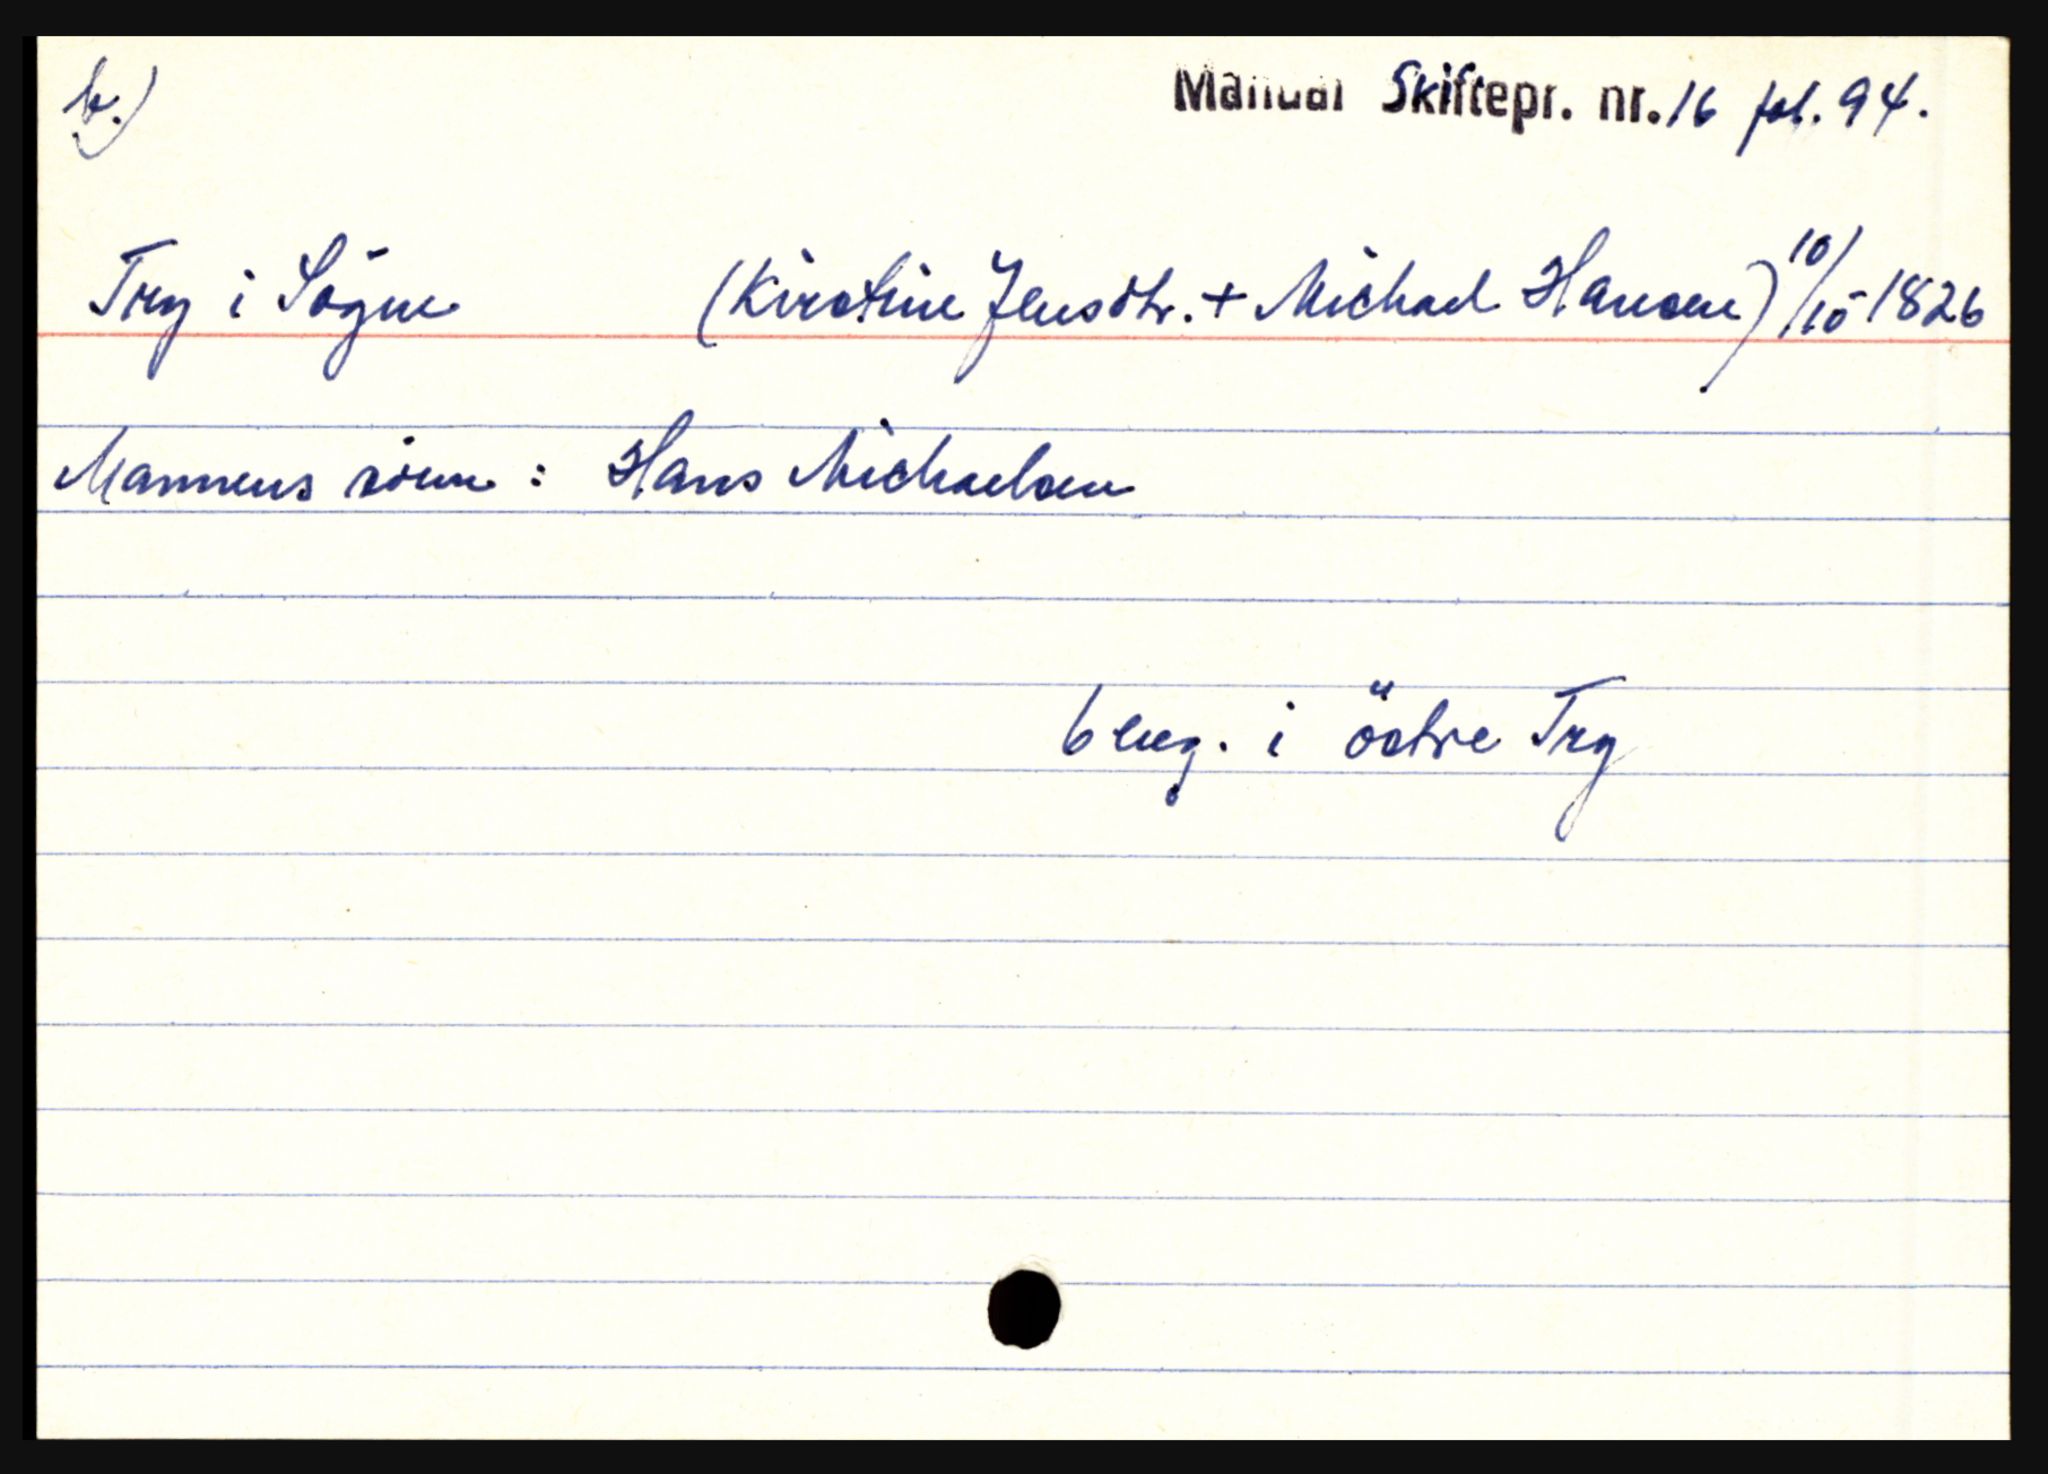 b.)
Manual Skiftepr. nr. 16 fol. 94.
Try i Sögne (Kirstine Jensdtr. + Michael Hansen) 10/10-1826
Mannens sönn : Hans Michaelsen
6 eng. i östre Try